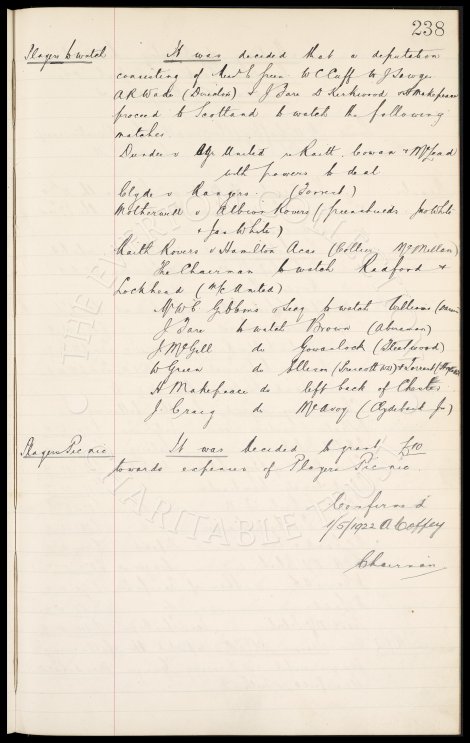 238
Players to watch It was decided that a deputation
consisting of Messrs E Green W C Cuff W J Sawyer
A R Wade (Director) & J Fare D Kirkwood & H Makepeace
proceed to Scotland to watch the following
matches
Dundee v Ayr United re Raitt, Cowan & McLeod
with powers to deal
Clyde v Rangers. (Forrest)
Motherwell v Albion Rovers (Greenshields Jno White
& Jas White)
Raith Rovers v Hamilton Acas (Collier McMillan)
The Chairman to watch Radford &
Lockhead (M/C United)
Mr W C Gibbins to watch Williams
J Fare to watch Brown (Aberaman)
J McGill do Gowanlock (Fleetwood)
W Green do Ellison (Prescott) & Forrest
H Makepeace do left back of Chester
J. Craig do McAvoy (Clydebank Jn)
Players Picnic It was decided to grant £10
towards expenses of Players Picnic.
Confirmed
1/5/1922 A Coffey
Chairman
THE EVERTON COLLECTION
CHARITABLE TRUST